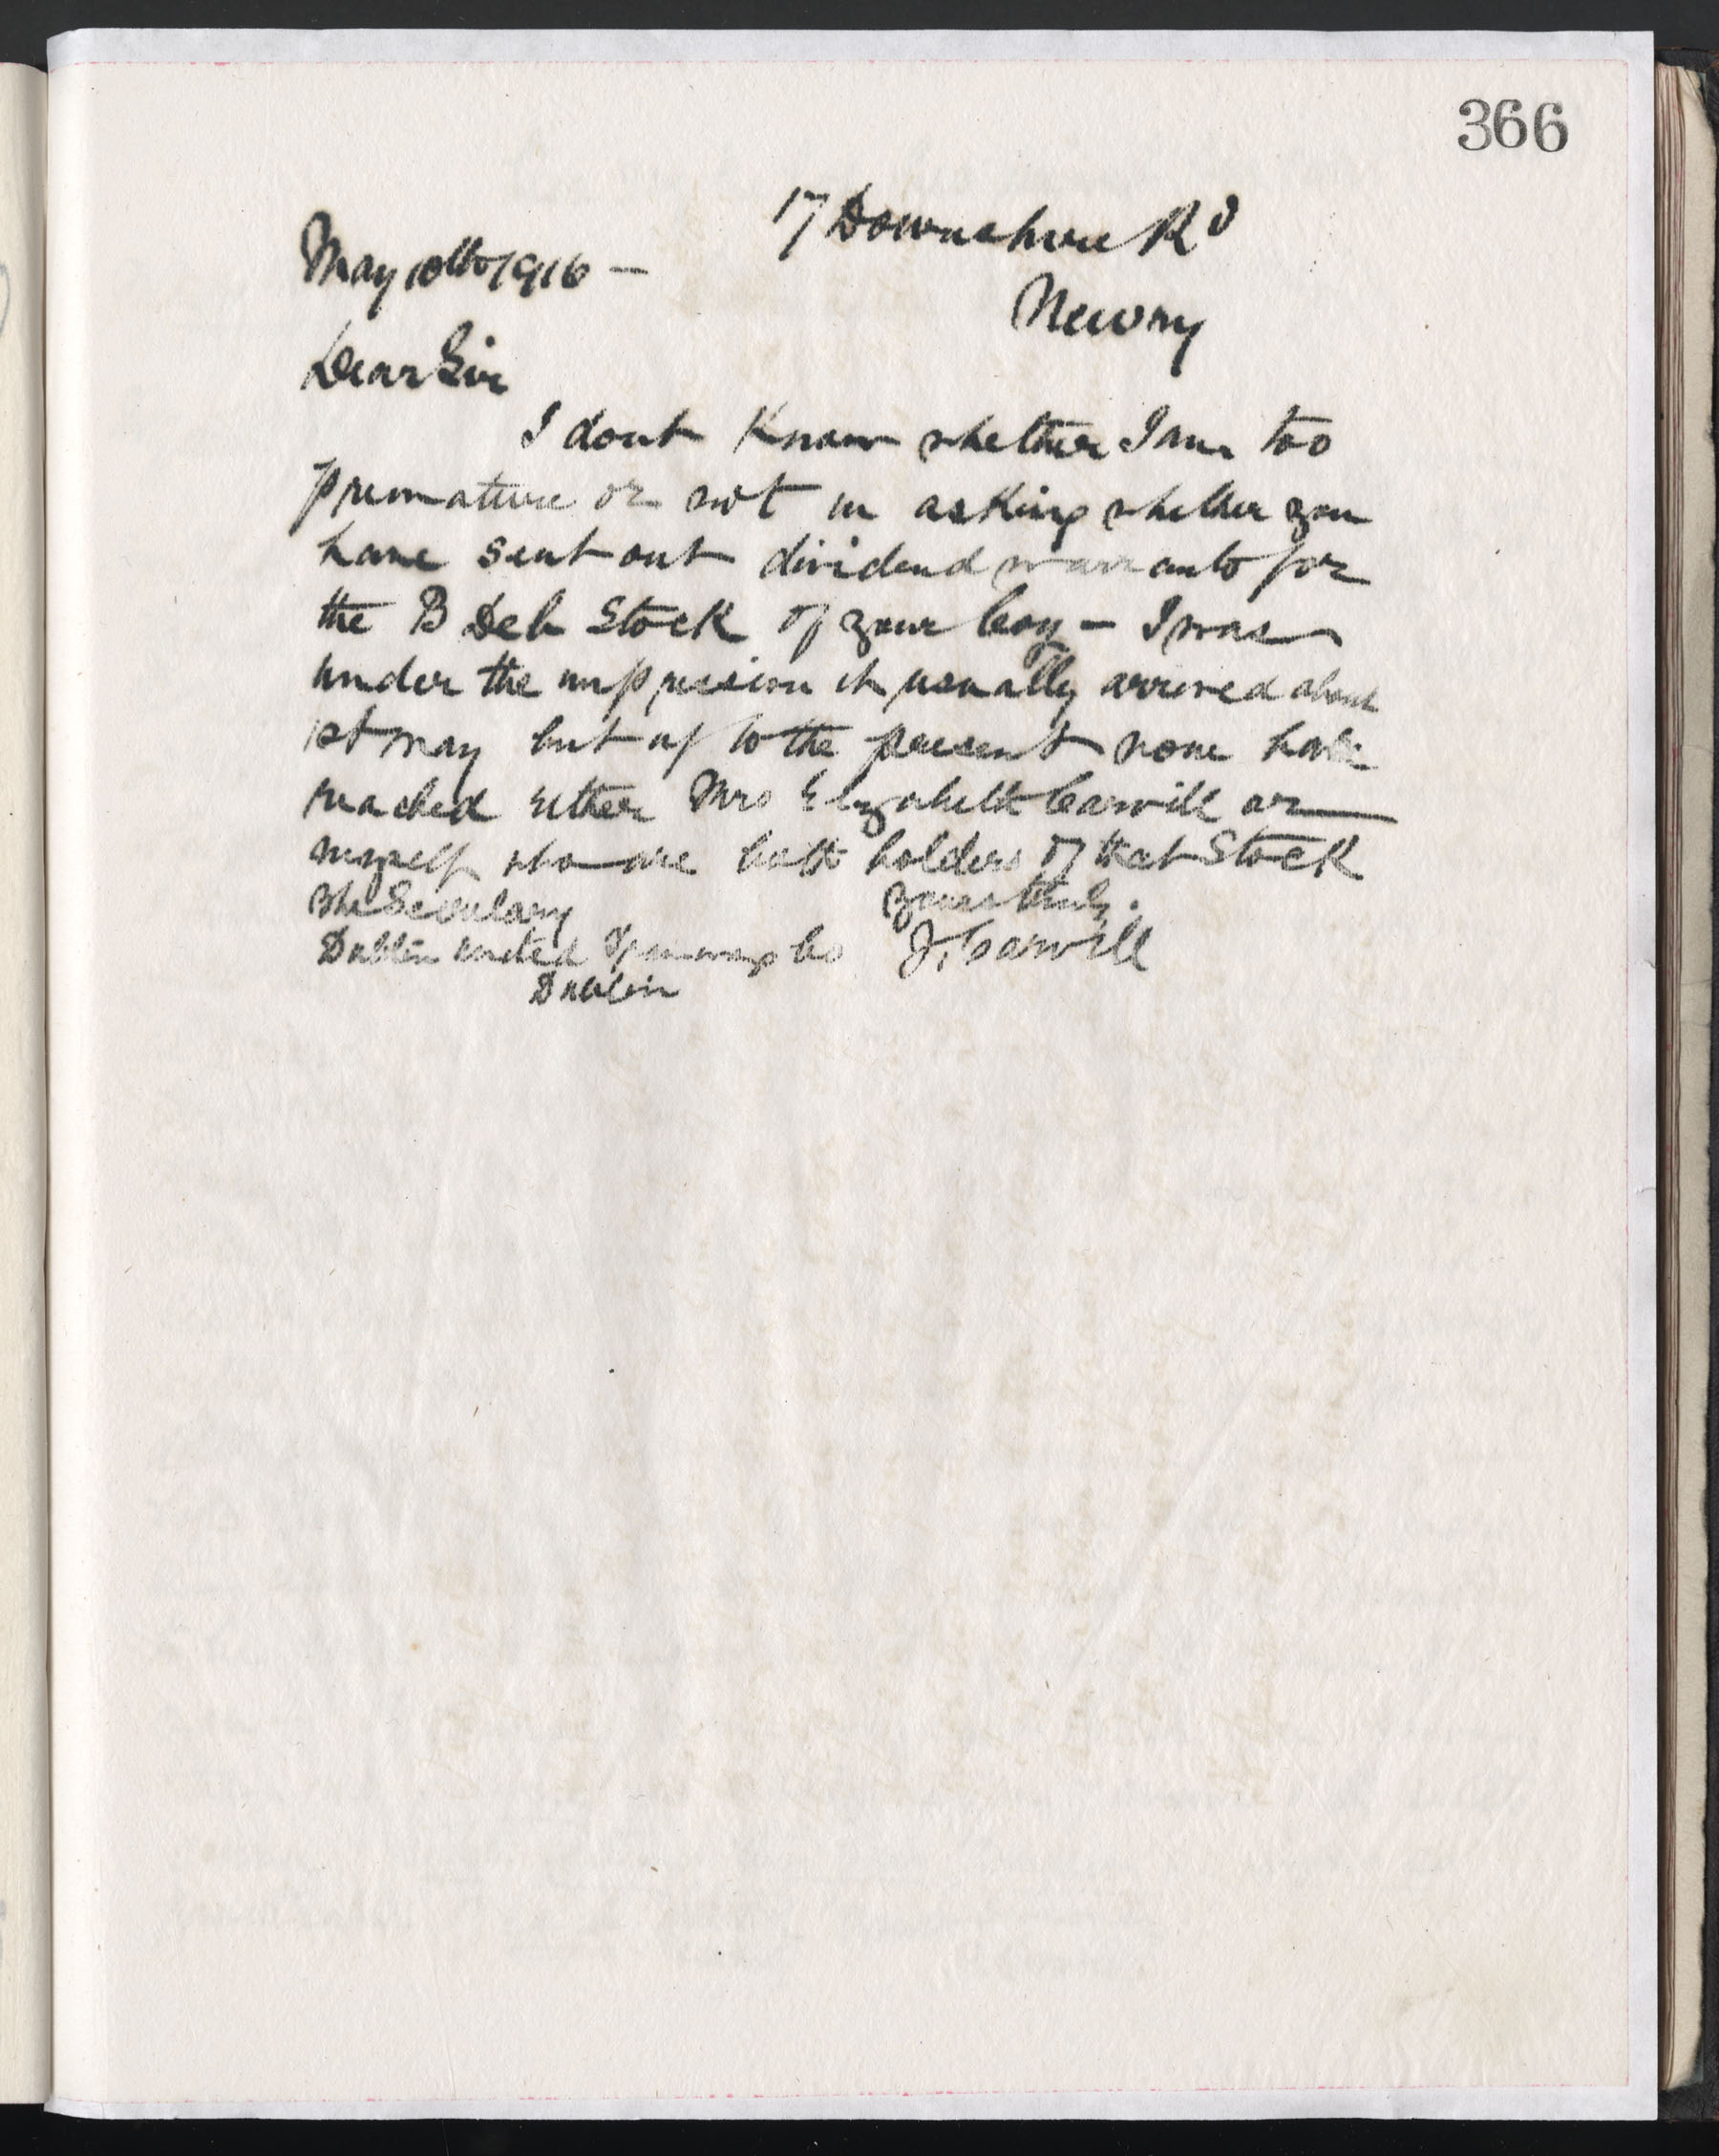 366
17 Downshire Rd
May 10th 1916 —
Newry
Dear Sir
I dont Know whether I am too
premature or not in asking whether you
have sent out dividend warrants for
the B Deb Stock of your Coy — I was
under the impression it usually arrived about
1st May but up to the present none have
reached either Mrs Elizabeth Carvill or
myself who are both holders of that Stock
The Secretary
yours truly.
Dublin United Tramways Co
J. Carvill
Dublin